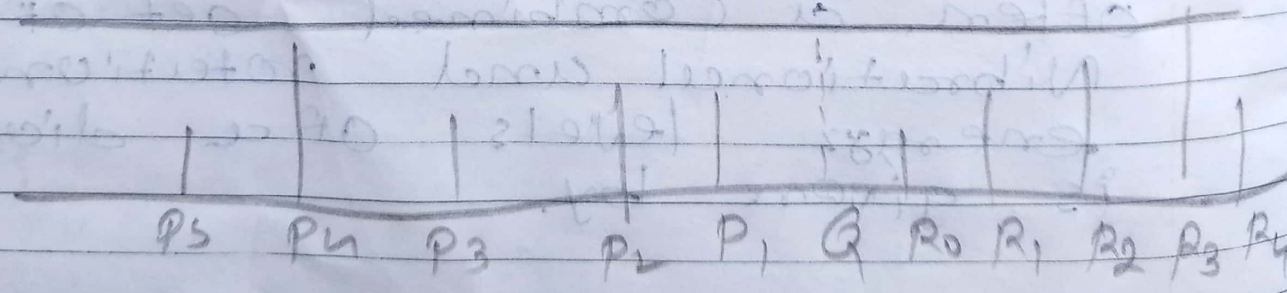 P5 P4 P3 P2 P1 Q R0 R1 R2 R3 R4